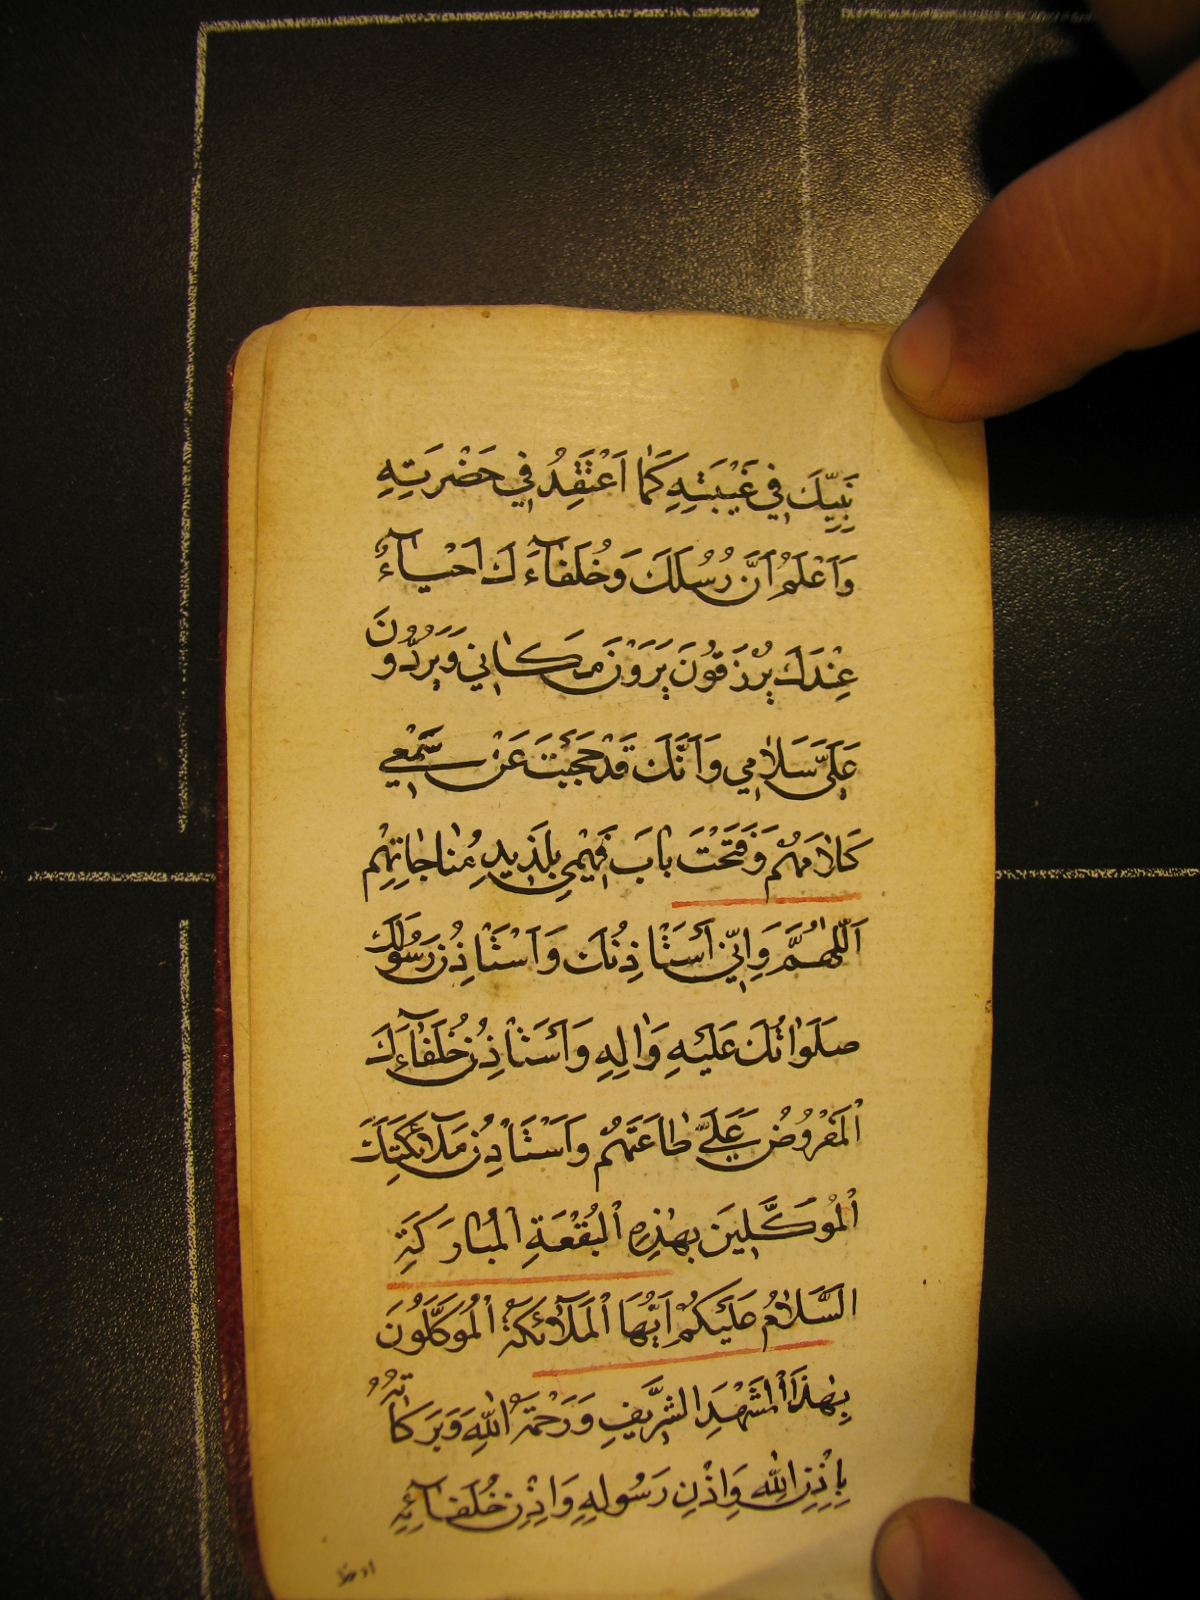 نَبِيِّكَ فِي غَيْبَتِهِ كَمَا اَعْتَقِدُ فِي حَضْرَتِهِ
وَاَعْلَمُ اَنَّ رُسُلَكَ وَخُلَفآءَكَ اَحْيآءٌ
عِنْدَكَ يُرْزَقُونَ يَرَوْنَ مَكانِي وَيَرُدُّونَ
عَلَيَّ سَلامِي وَاَنَّكَ قَدْ حَجَبْتَ عَنْ سَمْعِي
كَلامَهُمْ وَفَتَحْتَ بابَ فَهْمِي بِلَذِيذِ مُناجاتِهِمْ
اَللّهُمَّ وَاِنِّي اَسْتَاذِنُكَ وَاَسْتَاذِنُ رَسُولَكَ
صَلَواتُكَ عَلَيْهِ وَالِهِ وَاَسْتَاْذِنُ خُلَفآءَكَ
الْمَفْرُوضَ عَلَيَّ طاعَتُهُمْ وَاَسْتَاْذِنُ مَلآئِكَتَكَ
الْمُوَكَّلِينَ بِهذِهِ الْبُقْعَةِ الْمُبارَكَةِ
السَّلامُ عَلَيْكُمْ اَيُّهَا الْمَلآئِكَةُ الْمُوَكَّلُونَ
بِهذَا الْمَشْهَدِ الشَّرِيفِ وَرَحْمَةُ اللهِ وَبَرَكاتُهُ
بِاِذْنِ اللهِ وَاِذْنِ رَسُولِهِ وَاِذْنِ خُلَفآئِهِ